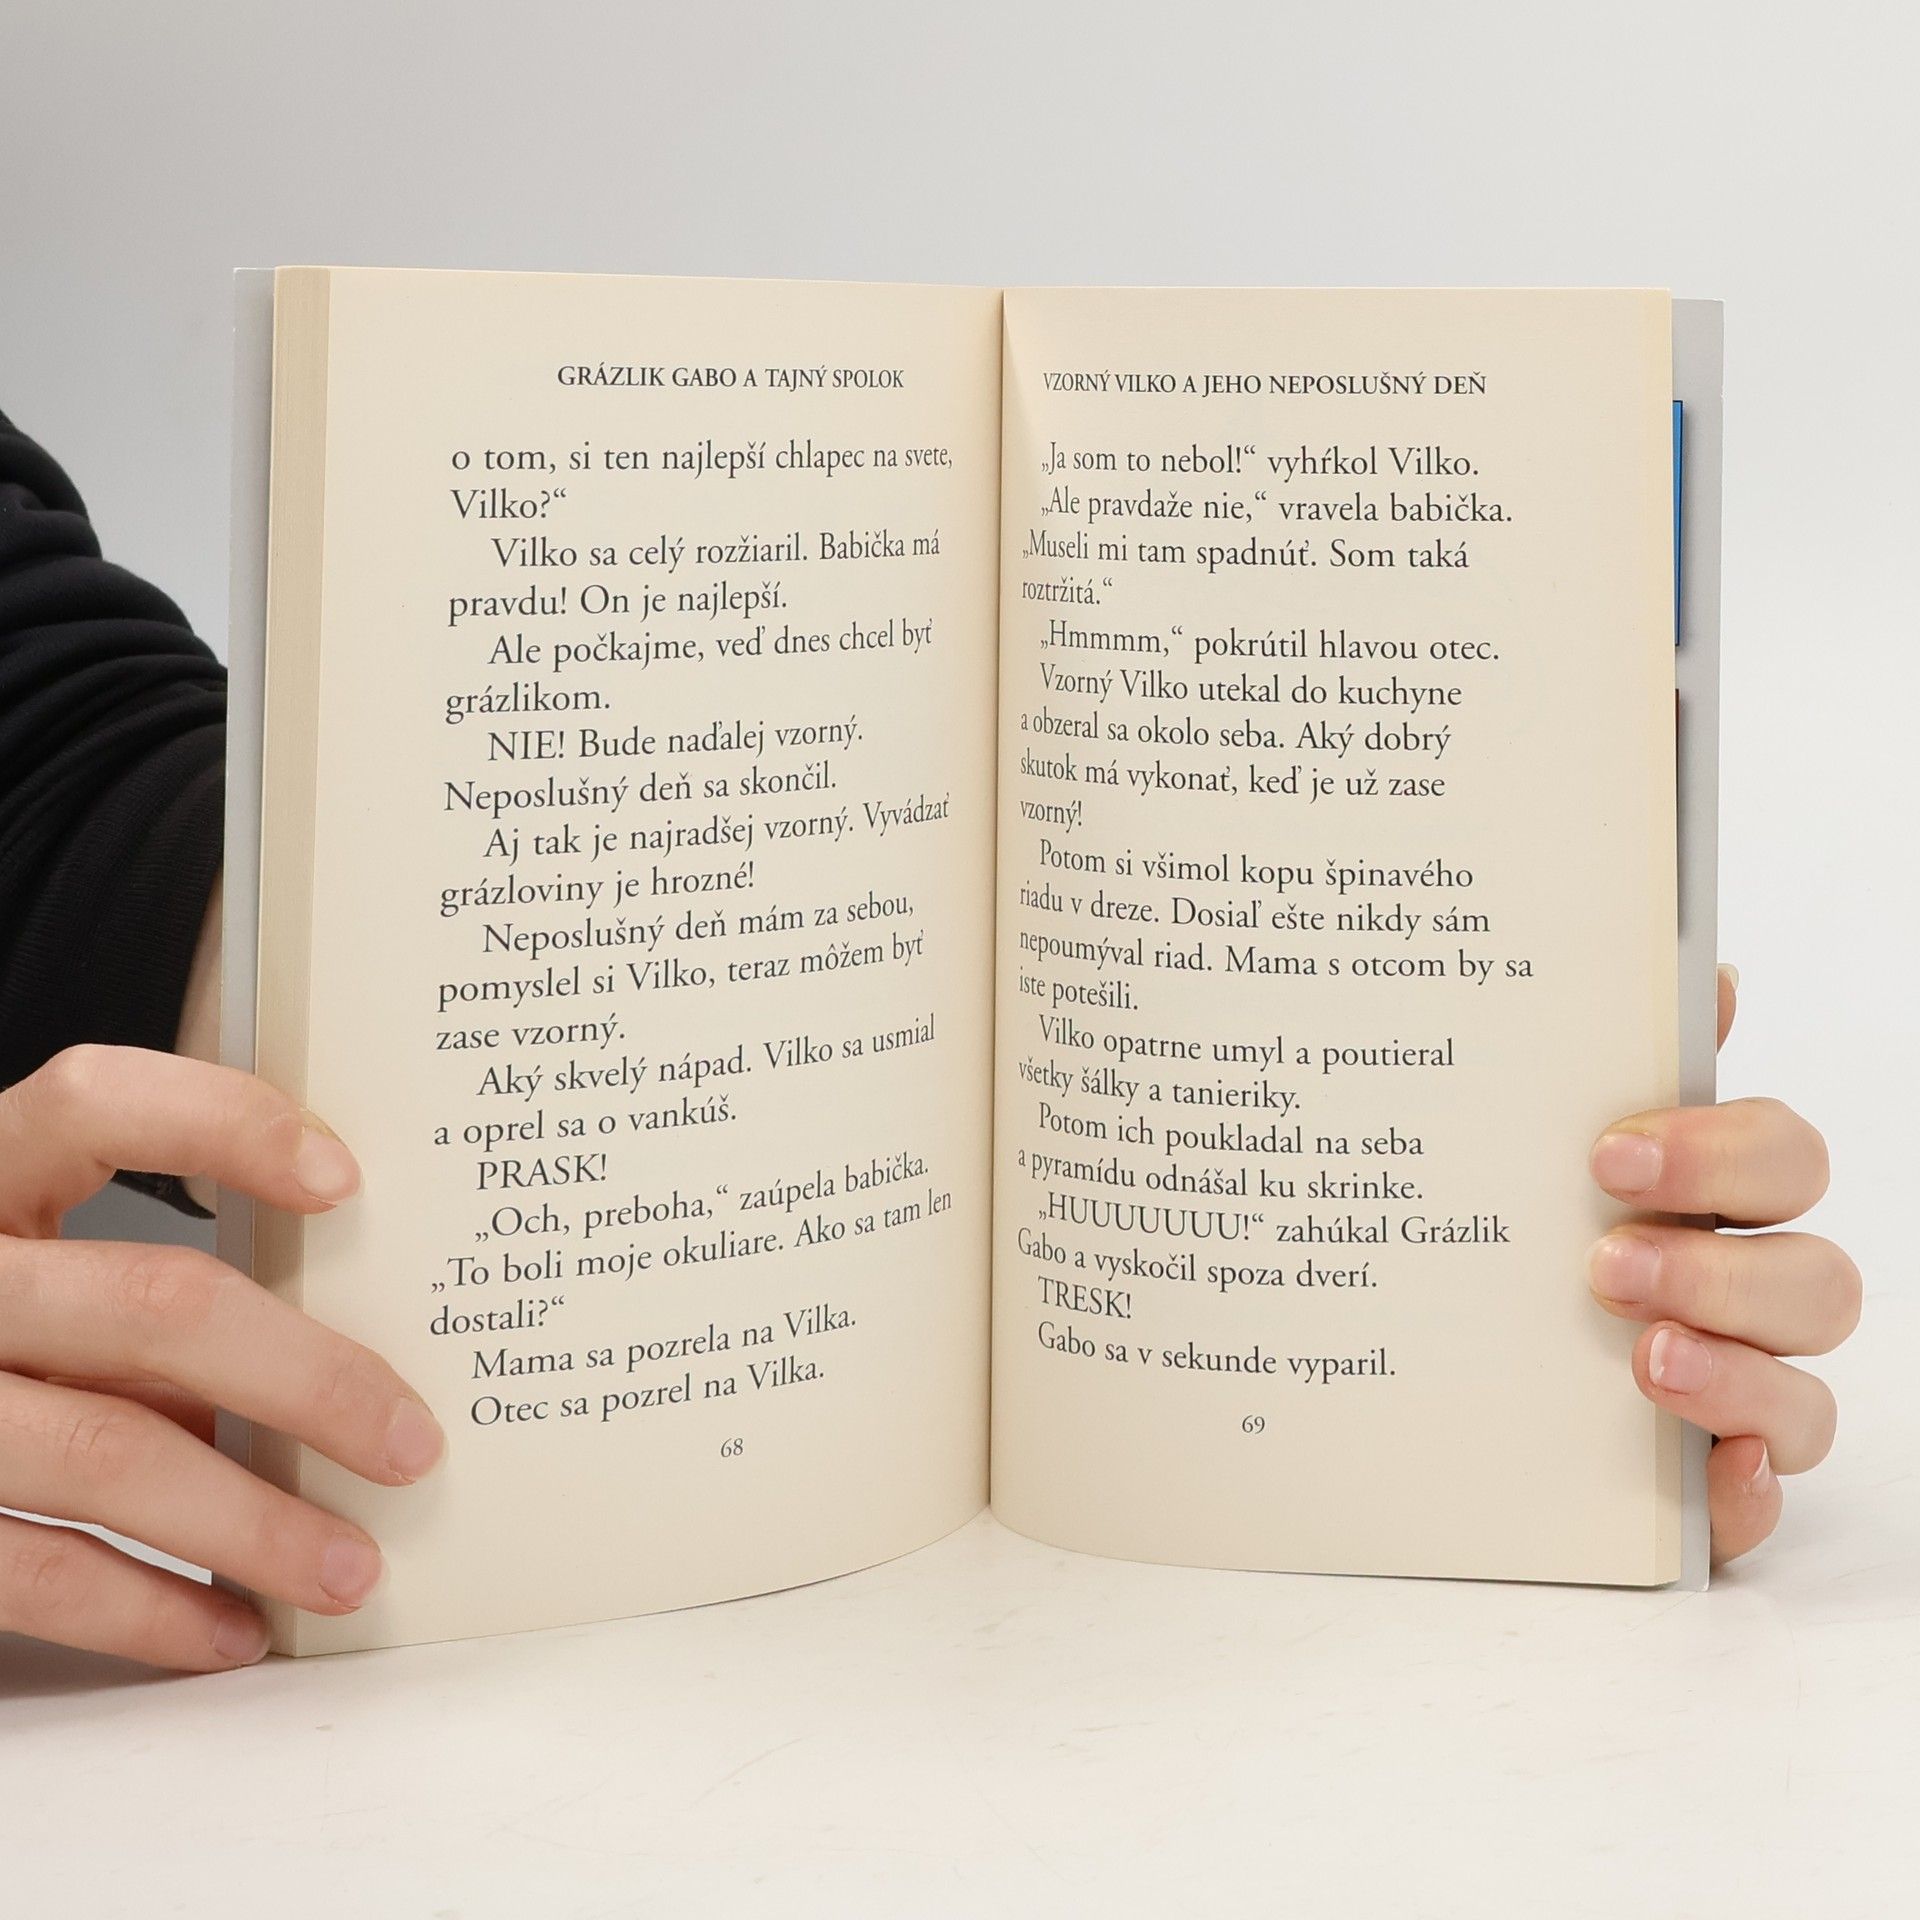 GRÁZLIK GABO A TAJNÝ SPOLOK
o tom, si ten najlepší chlapec na svete,
Vilko?“
Vilko sa celý rozžiaril. Babička má
pravdu! On je najlepší.
Ale počkajme, veď dnes chcel byť
grázlikom.
NIE! Bude naďalej vzorný.
Neposlušný deň sa skončil.
Aj tak je najradšej vzorný. Vyvádzať
grázloviny je hrozné!
Neposlušný deň mám za sebou,
pomyslel si Vilko, teraz môžem byť
zase vzorný.
Aký skvelý nápad. Vilko sa usmial
a oprel sa o vankúš.
PRASK!
„Och, preboha,“ zaúpela babička.
„To boli moje okuliare. Ako sa tam len
dostali?“
Mama sa pozrela na Vilka.
Otec sa pozrel na Vilka.
68
VZORNÝ VILKO A JEHO NEPOSLUŠNÝ DEŇ
„Ja som to nebol!“ vyhŕkol Vilko.
„Ale pravdaže nie,“ vravela babička.
„Museli mi tam spadnúť. Som taká
roztržitá.“
„Hmmmm,“ pokrútil hlavou otec.
Vzorný Vilko utekal do kuchyne
a obzeral sa okolo seba. Aký dobrý
skutok má vykonať, keď je už zase
vzorný!
Potom si všimol kopu špinavého
riadu v dreze. Dosiaľ ešte nikdy sám
nepoumýval riad. Mama s otcom by sa
iste potešili.
Vilko opatrne umyl a poutieral
všetky šálky a tanieriky.
Potom ich poukladal na seba
a pyramídu odnášal ku skrinke.
„HUUUUUUU!“ zahúkal Grázlik
Gabo a vyskočil spoza dverí.
TRESK!
Gabo sa v sekunde vyparil.
69